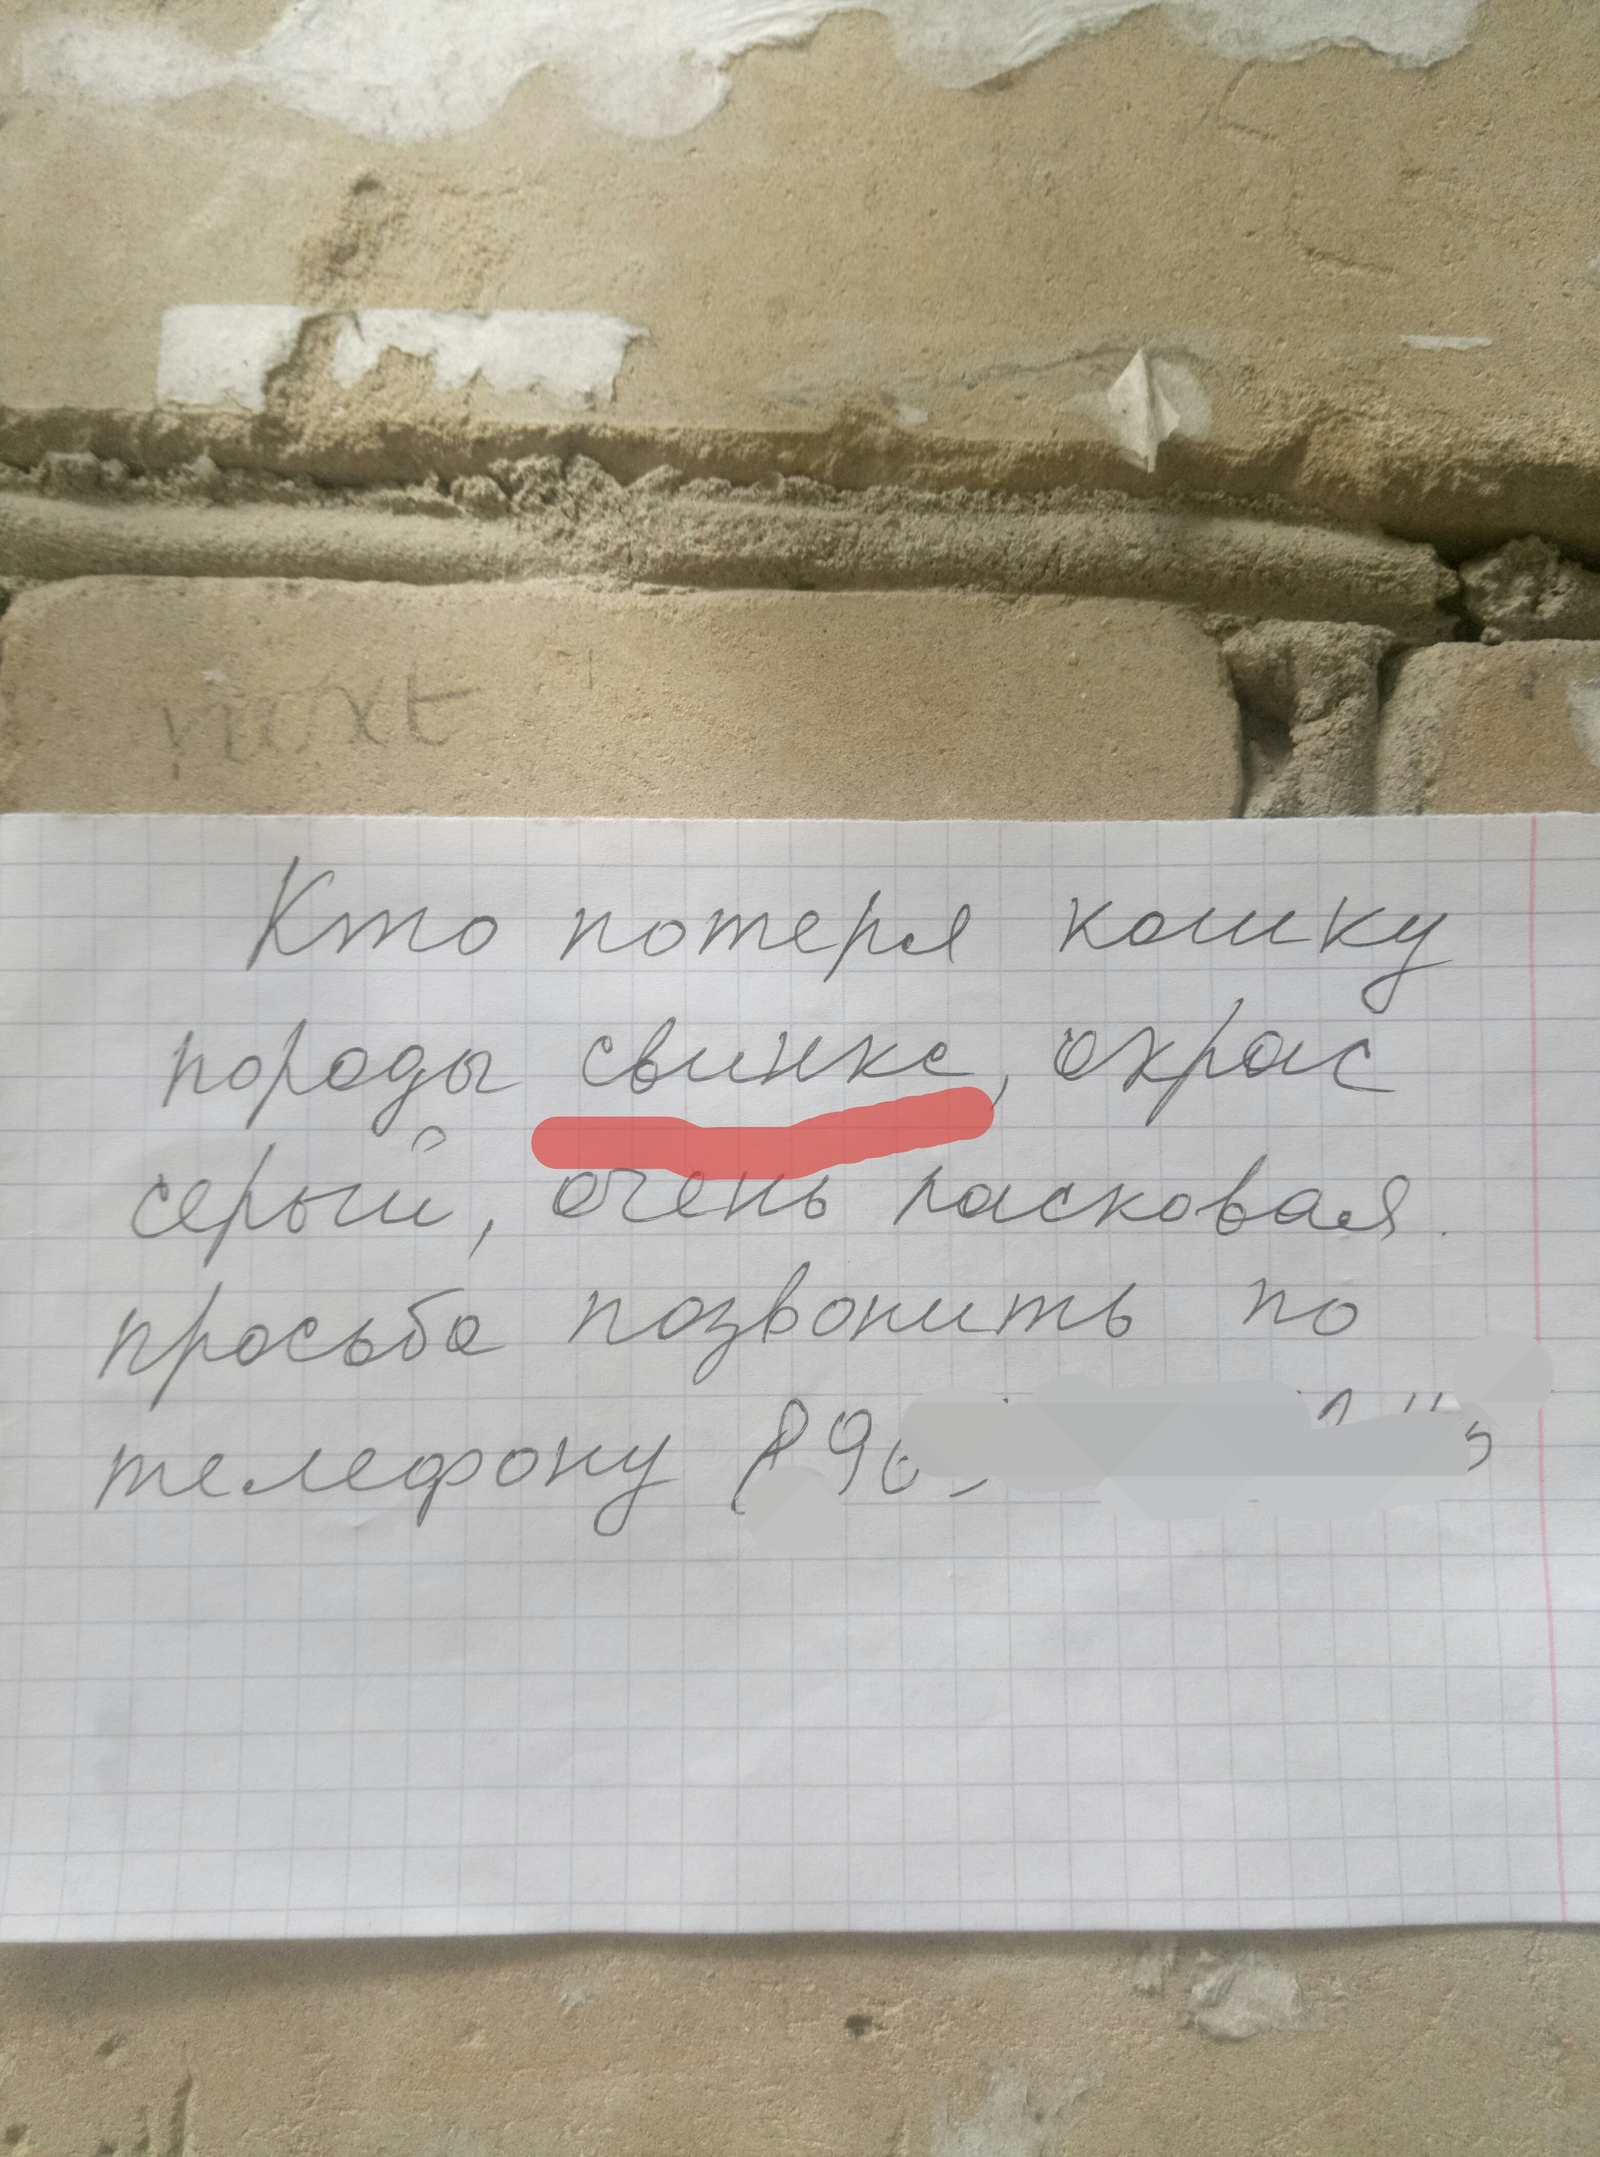 next
Кто потеря кошку
породы свинкс, окрас
серый, очень ласковая.
просьба позвонить по
телефону 89